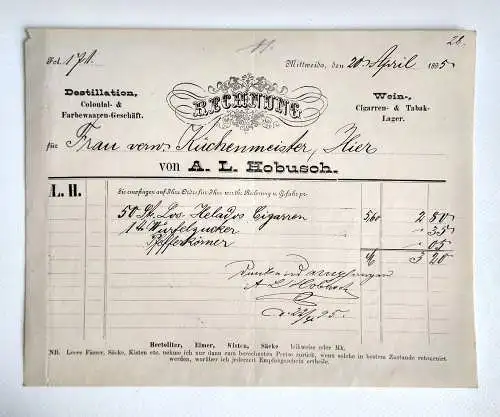 28.
Fol. 171.
Mittweida, den 20. April 1895
Destillation,
Colonial- &
Farbewaaren-Geschäft.
RECHNUNG
Wein-,
Cigarren- & Tabak-
Lager.
für Frau verw. Küchenmeister, Hier
von A. L. Hobusch.
L. H. Sie empfingen auf Ihre Ordre für Ihre werthe Rechnung u. Gefahr pr.
50 St. Los. Helados Cigarren 5,60 2 80
1 ℔ Würfelzucker " 35
Pfefferkörner " 05
M 3 20
Dankend empfangen
A L Hobusch
d 22/4 95.
Hectoliter, Eimer, Kisten, Säcke leihweise oder Mk.
NB. Leere Fässer, Säcke, Kisten etc. nehme ich nur dann zum berechneten Preise zurück, wenn solche in bestem Zustande retournirt
werden, worüber ich jederzeit Empfangsschein ertheile.